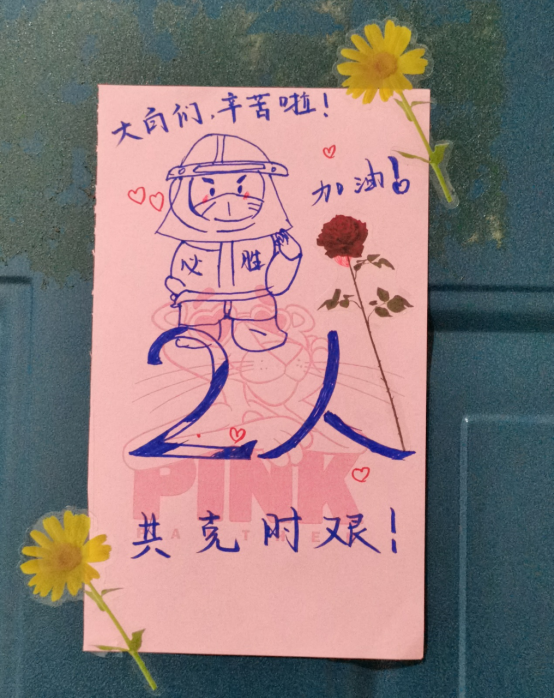 大白们,辛苦啦!
加油!
必胜
2人
PINK
共克时艰!